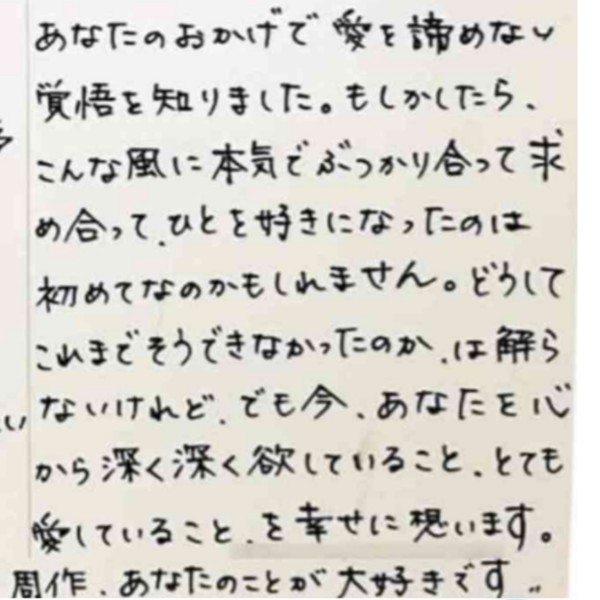 あなたのおかげで愛を諦めない
覚悟を知りました。もしかしたら、
こんな風に本気でぶつかり合って求
め合って、ひとを好きになったのは
初めてなのかもしれません。どうして
これまでそうできなかったのか、は解ら
ないけれど、でも今、あなたを心
から深く深く欲していること、とても
愛していること、を幸せに想います。
周作、あなたのことが大好きです。